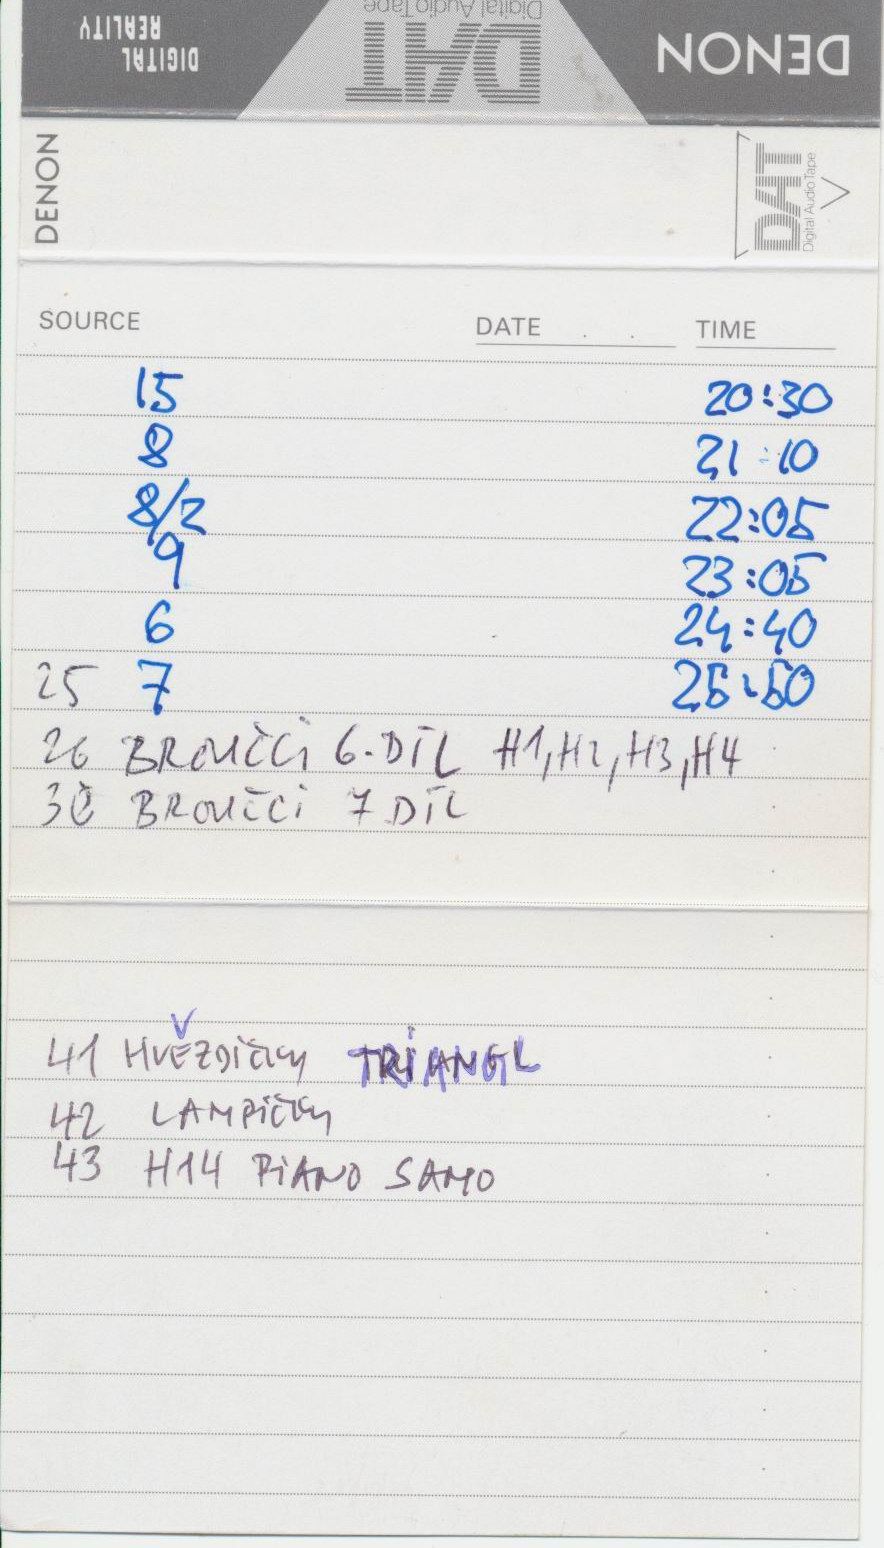 DIGITAL REALITY
DAT Digital Audio Tape
DENON
DENON
DAT Digital Audio Tape
SOURCE DATE . . TIME
15 20:30
8 21:10
8/2 22:05
9 23:05
6 24:40
25 7 25:50
26 BROUČCI 6. DÍL H1, H2, H3, H4
BROUČCI 7 DÍL
41 HVĚZDIČKY TRIANGL
42 LAMPIČKY
43 H14 PIANO SAMO